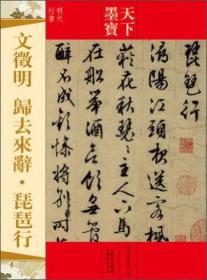 天下墨寶
明代
行書
文徵明 歸去來辭·琵琶行
琵琶行
潯陽江頭夜送客楓
荻花秋瑟瑟主人下馬客
在船舉酒欲飲無管絃
醉不成歡慘將別別時